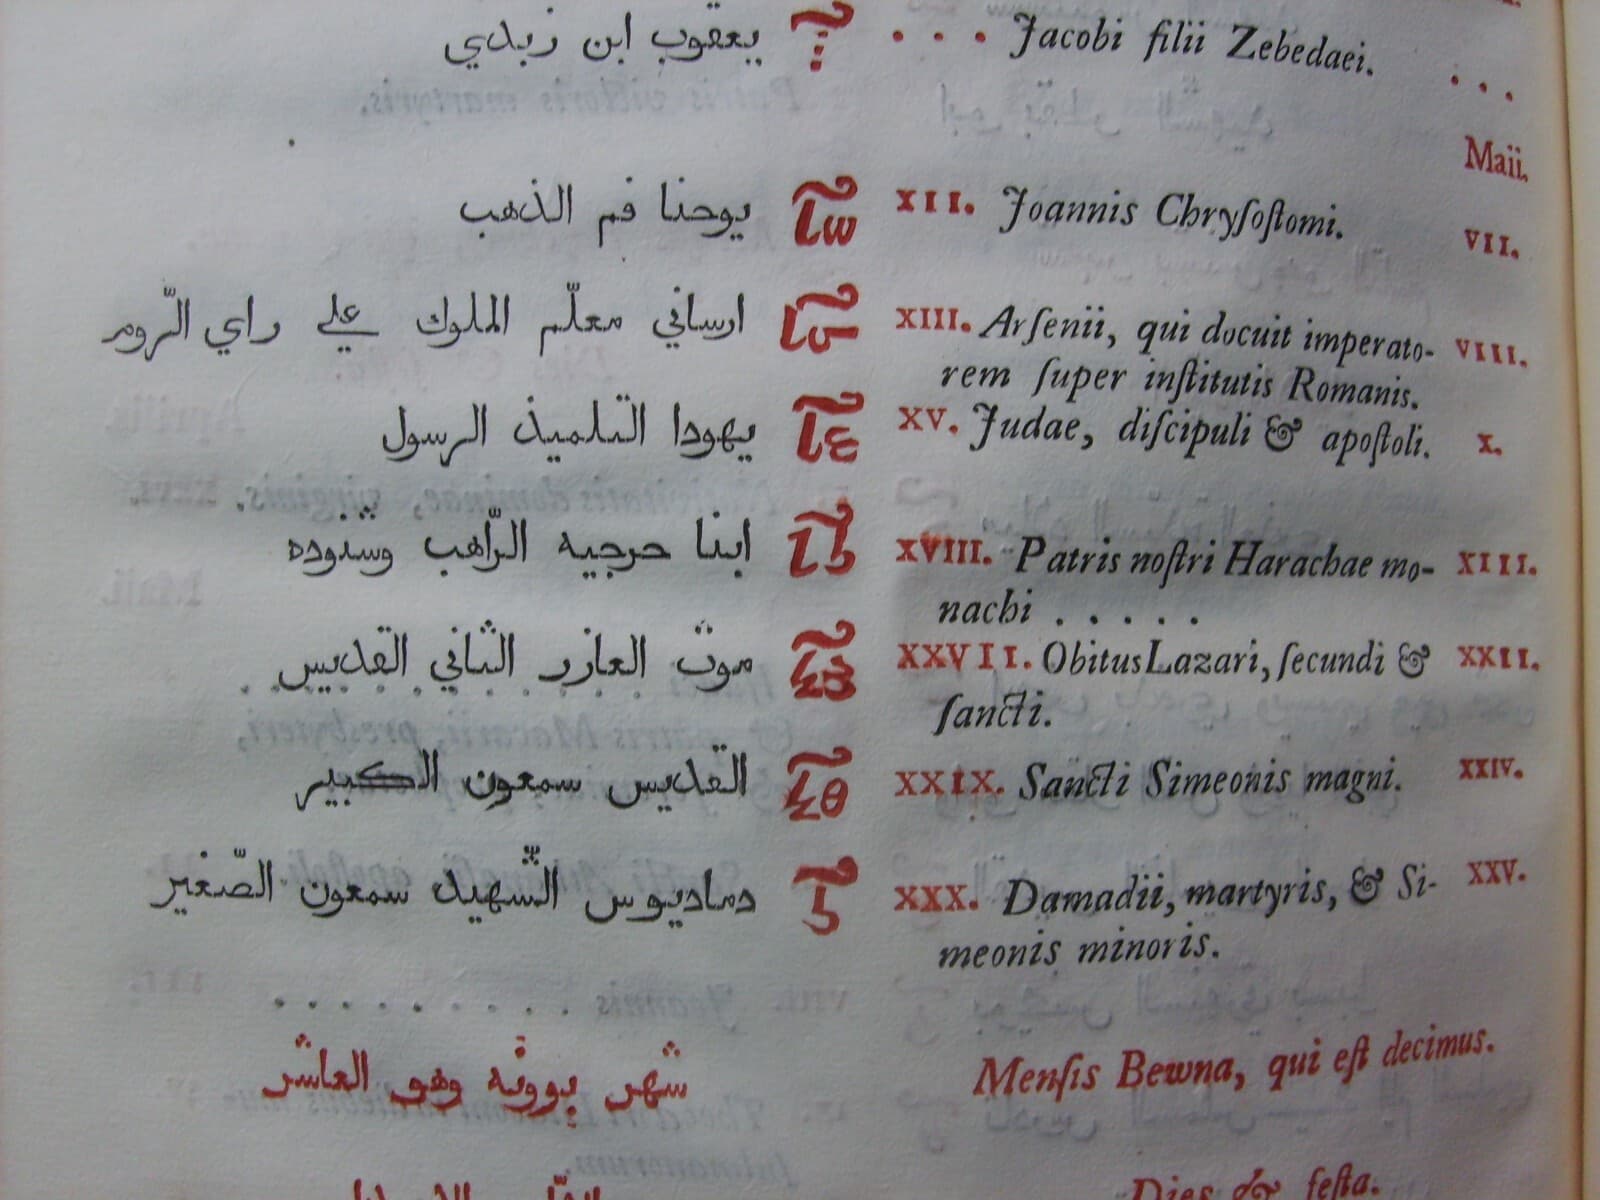 يعقوب ابن زبدي ... Jacobi filii Zebedaei. ...
Maii.
يوحنا فم الذهب ⲓ̅ⲱ̅ XII. Joannis Chryſoſtomi. VII.
ارساني معلّم الملوك علي راي الرّوم XIII. Arſenii, qui docuit imperato- VIII.
rem ſuper inſtitutis Romanis.
يهودا التلميذ الرسول ⲓ̅ⲉ̅ XV. Judae, diſcipuli & apoſtoli. X.
ابنا حرجيه الرّاهب وشنوده XVIII. Patris noſtri Harachae mo- XIII.
nachi .....
موت العازر الثاني القديس XXVII. Obitus Lazari, ſecundi & XXII.
ſancti.
القديس سمعون الكبير XXIX. Sancti Simeonis magni. XXIV.
دماديوس الشّهيد سمعون الصّغير XXX. Damadii, martyris, & Si- XXV.
meonis minoris.
.........
شهر بوونه وهو العاشر Menſis Bewna, qui eſt decimus.
Dies & feſta.